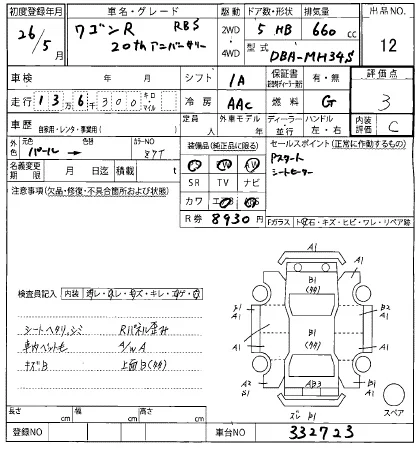 初度登録年月
26/5月
車名・グレード
ワゴンR RBS
20thアニバーサリー
駆動 2WD 4WD
ドア数・形状 5 HB
排気量 660 cc
型式 DBA-MH34S
出品NO. 12
車検 年 月
シフト IA
保証書 有・無
評価点 3
走行 13万6千300 キロ・マイル
冷房 AAC
燃料 G
車歴 自家用・レンタ・事業用( )
定員 人
外車モデル 年
ディーラー 並行
ハンドル 左・右
内装評価 C
外色 元色 パール → 色替
カラーNO
装備品(純正品に限る)
セールスポイント(正常に作動するもの)
Pスタート
シートヒーター
SR TV ナビ
名義変更期限 月 日迄
積載 t
カワ
R券 8930円
注意事項(欠品・修復・不具合箇所および状態)
Fガラス
石・キズ・ヒビ・ワレ・リペア跡
検査員記入
内装
シートヘタリ、シミ
Rパネル歪み
車内ペット毛
A/W A
キズB
上面B(タホ)
A1
A1
B1
A1
A1
A1
B2
A1
A1
A1
A2
B1
AB3
B1
スペア
長さ cm
幅 cm
高さ cm
登録NO
車台NO 332723